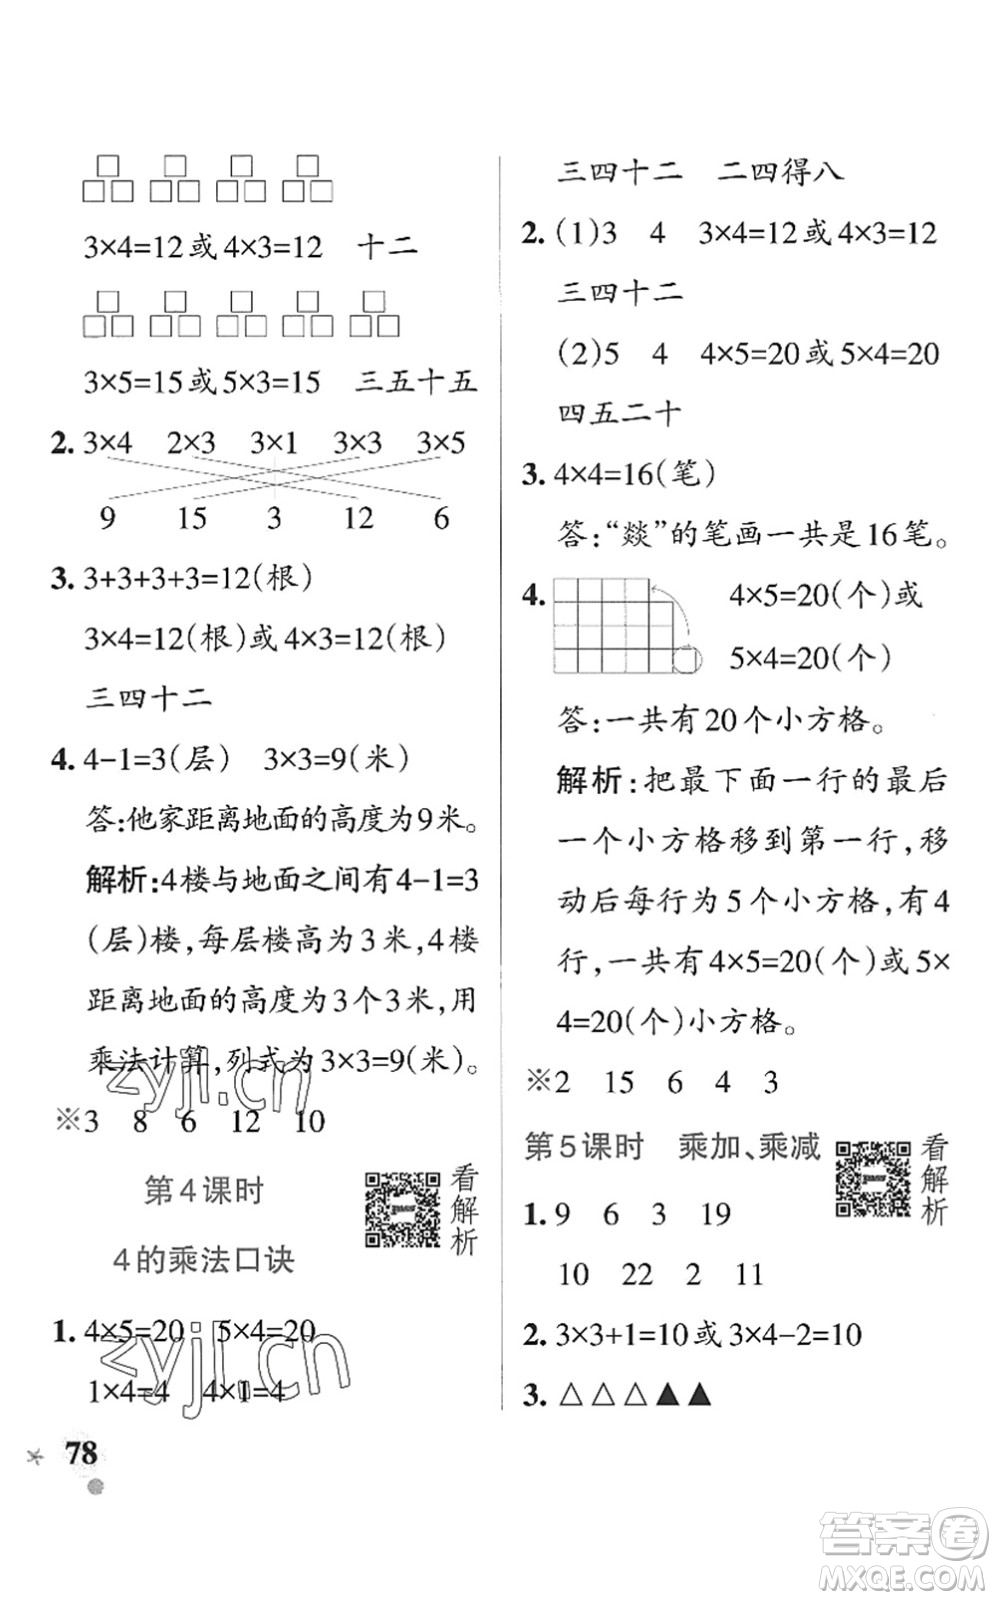 3×4=12或4×3=12 十二
3×5=15或5×3=15 三五十五
2. 3×4 2×3 3×1 3×3 3×5
9 15 3 12 6
3. 3+3+3+3=12(根)
3×4=12(根)或4×3=12(根)
三四十二
4. 4-1=3(层) 3×3=9(米)
答:他家距离地面的高度为9米。
解析:4楼与地面之间有4-1=3
(层)楼,每层楼高为3米,4楼
距离地面的高度为3个3米,用
乘法计算,列式为3×3=9(米)。
※3 8 6 12 10
第4课时
4的乘法口诀
看解析
1. 4×5=20 5×4=20
1×4=4 4×1=4
78
三四十二 二四得八
2. (1)3 4 3×4=12或4×3=12
三四十二
(2)5 4 4×5=20或5×4=20
四五二十
3. 4×4=16(笔)
答:“燚”的笔画一共是16笔。
4. 4×5=20(个)或
5×4=20(个)
答:一共有20个小方格。
解析:把最下面一行的最后
一个小方格移到第一行,移
动后每行为5个小方格,有4
行,一共有4×5=20(个)或5×
4=20(个)小方格。
※2 15 6 4 3
第5课时 乘加、乘减
看解析
1. 9 6 3 19
10 22 2 11
2. 3×3+1=10或3×4-2=10
3. △△△▲▲
zyji.cn
zyji.cn
答案卷
MXQE.COM